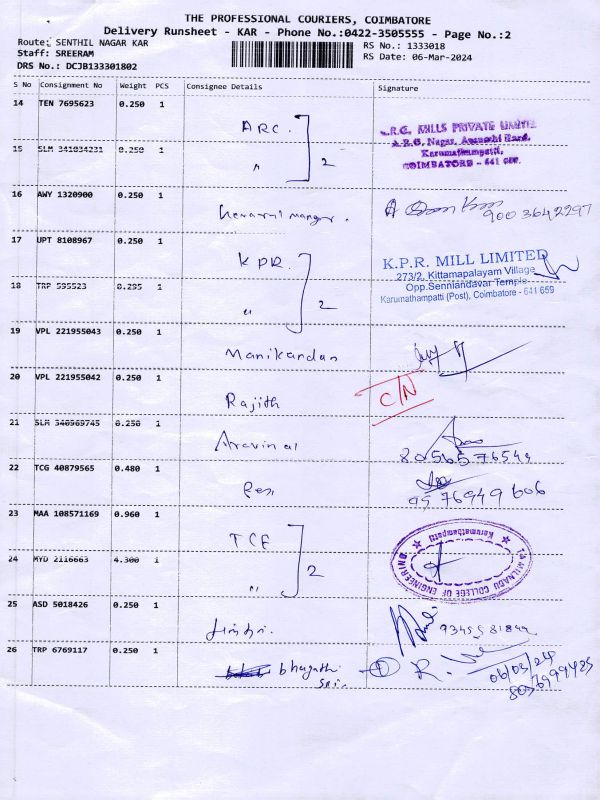 THE PROFESSIONAL COURIERS, COIMBATORE
Delivery Runsheet - KAR - Phone No.:0422-3505555 - Page No.:2
Route: SENTHIL NAGAR KAR RS No.: 1333018
Staff: SREERAM RS Date: 06-Mar-2024
DRS No.: DCJB133301802
S No Consignment No Weight PCS Consignee Details Signature
14 TEN 7695623 0.250 1 ARC.
A.R.C. MILLS PRIVATE LIMITED
A.R.G. Nagar,
Karumathampatti,
COIMBATORE - 641 659.
15 SLM 341034231 0.250 1 " 2
16 AWY 1320900 0.250 1 9003642297
17 UPT 8108967 0.250 1 KPR.
K.P.R. MILL LIMITED
273/2, Kittamapalayam Village
Opp.Senniandavar Temple
Karumathampatti (Post), Coimbatore - 641 659
18 TRP 595523 0.295 1 " 2
19 VPL 221955043 0.250 1 Manikandan
20 VPL 221955042 0.250 1 Rajith C/N
21 SLM 340969745 0.250 1 Aravind 8056576549
22 TCG 40879565 0.480 1 9976949606
23 MAA 108571169 0.960 1 TCE
TAMILNADU COLLEGE OF ENGINEERING
Karumathampatti
24 MYD 2116663 4.300 1 " 2
25 ASD 5018426 0.250 1
26 TRP 6769117 0.250 1 bhagathi
sri. R.
06/03/24